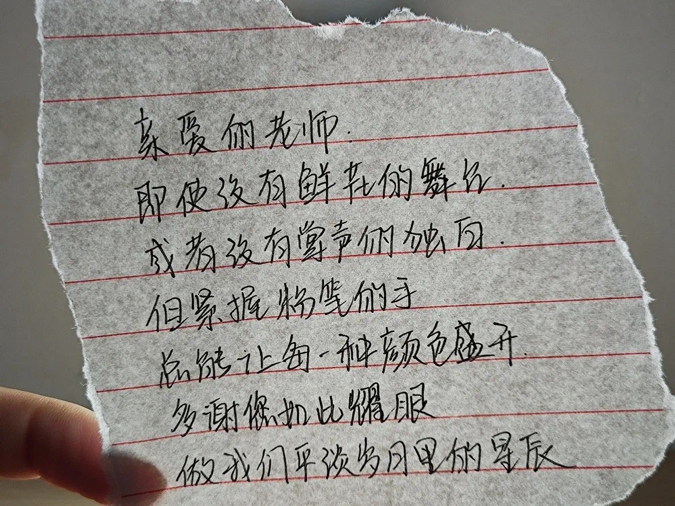 亲爱的老师.
即使没有鲜花的舞台.
或者没有掌声的独白.
但紧握粉笔的手
总能让每一种颜色盛开.
多谢您如此耀眼
做我们平淡岁月里的星辰